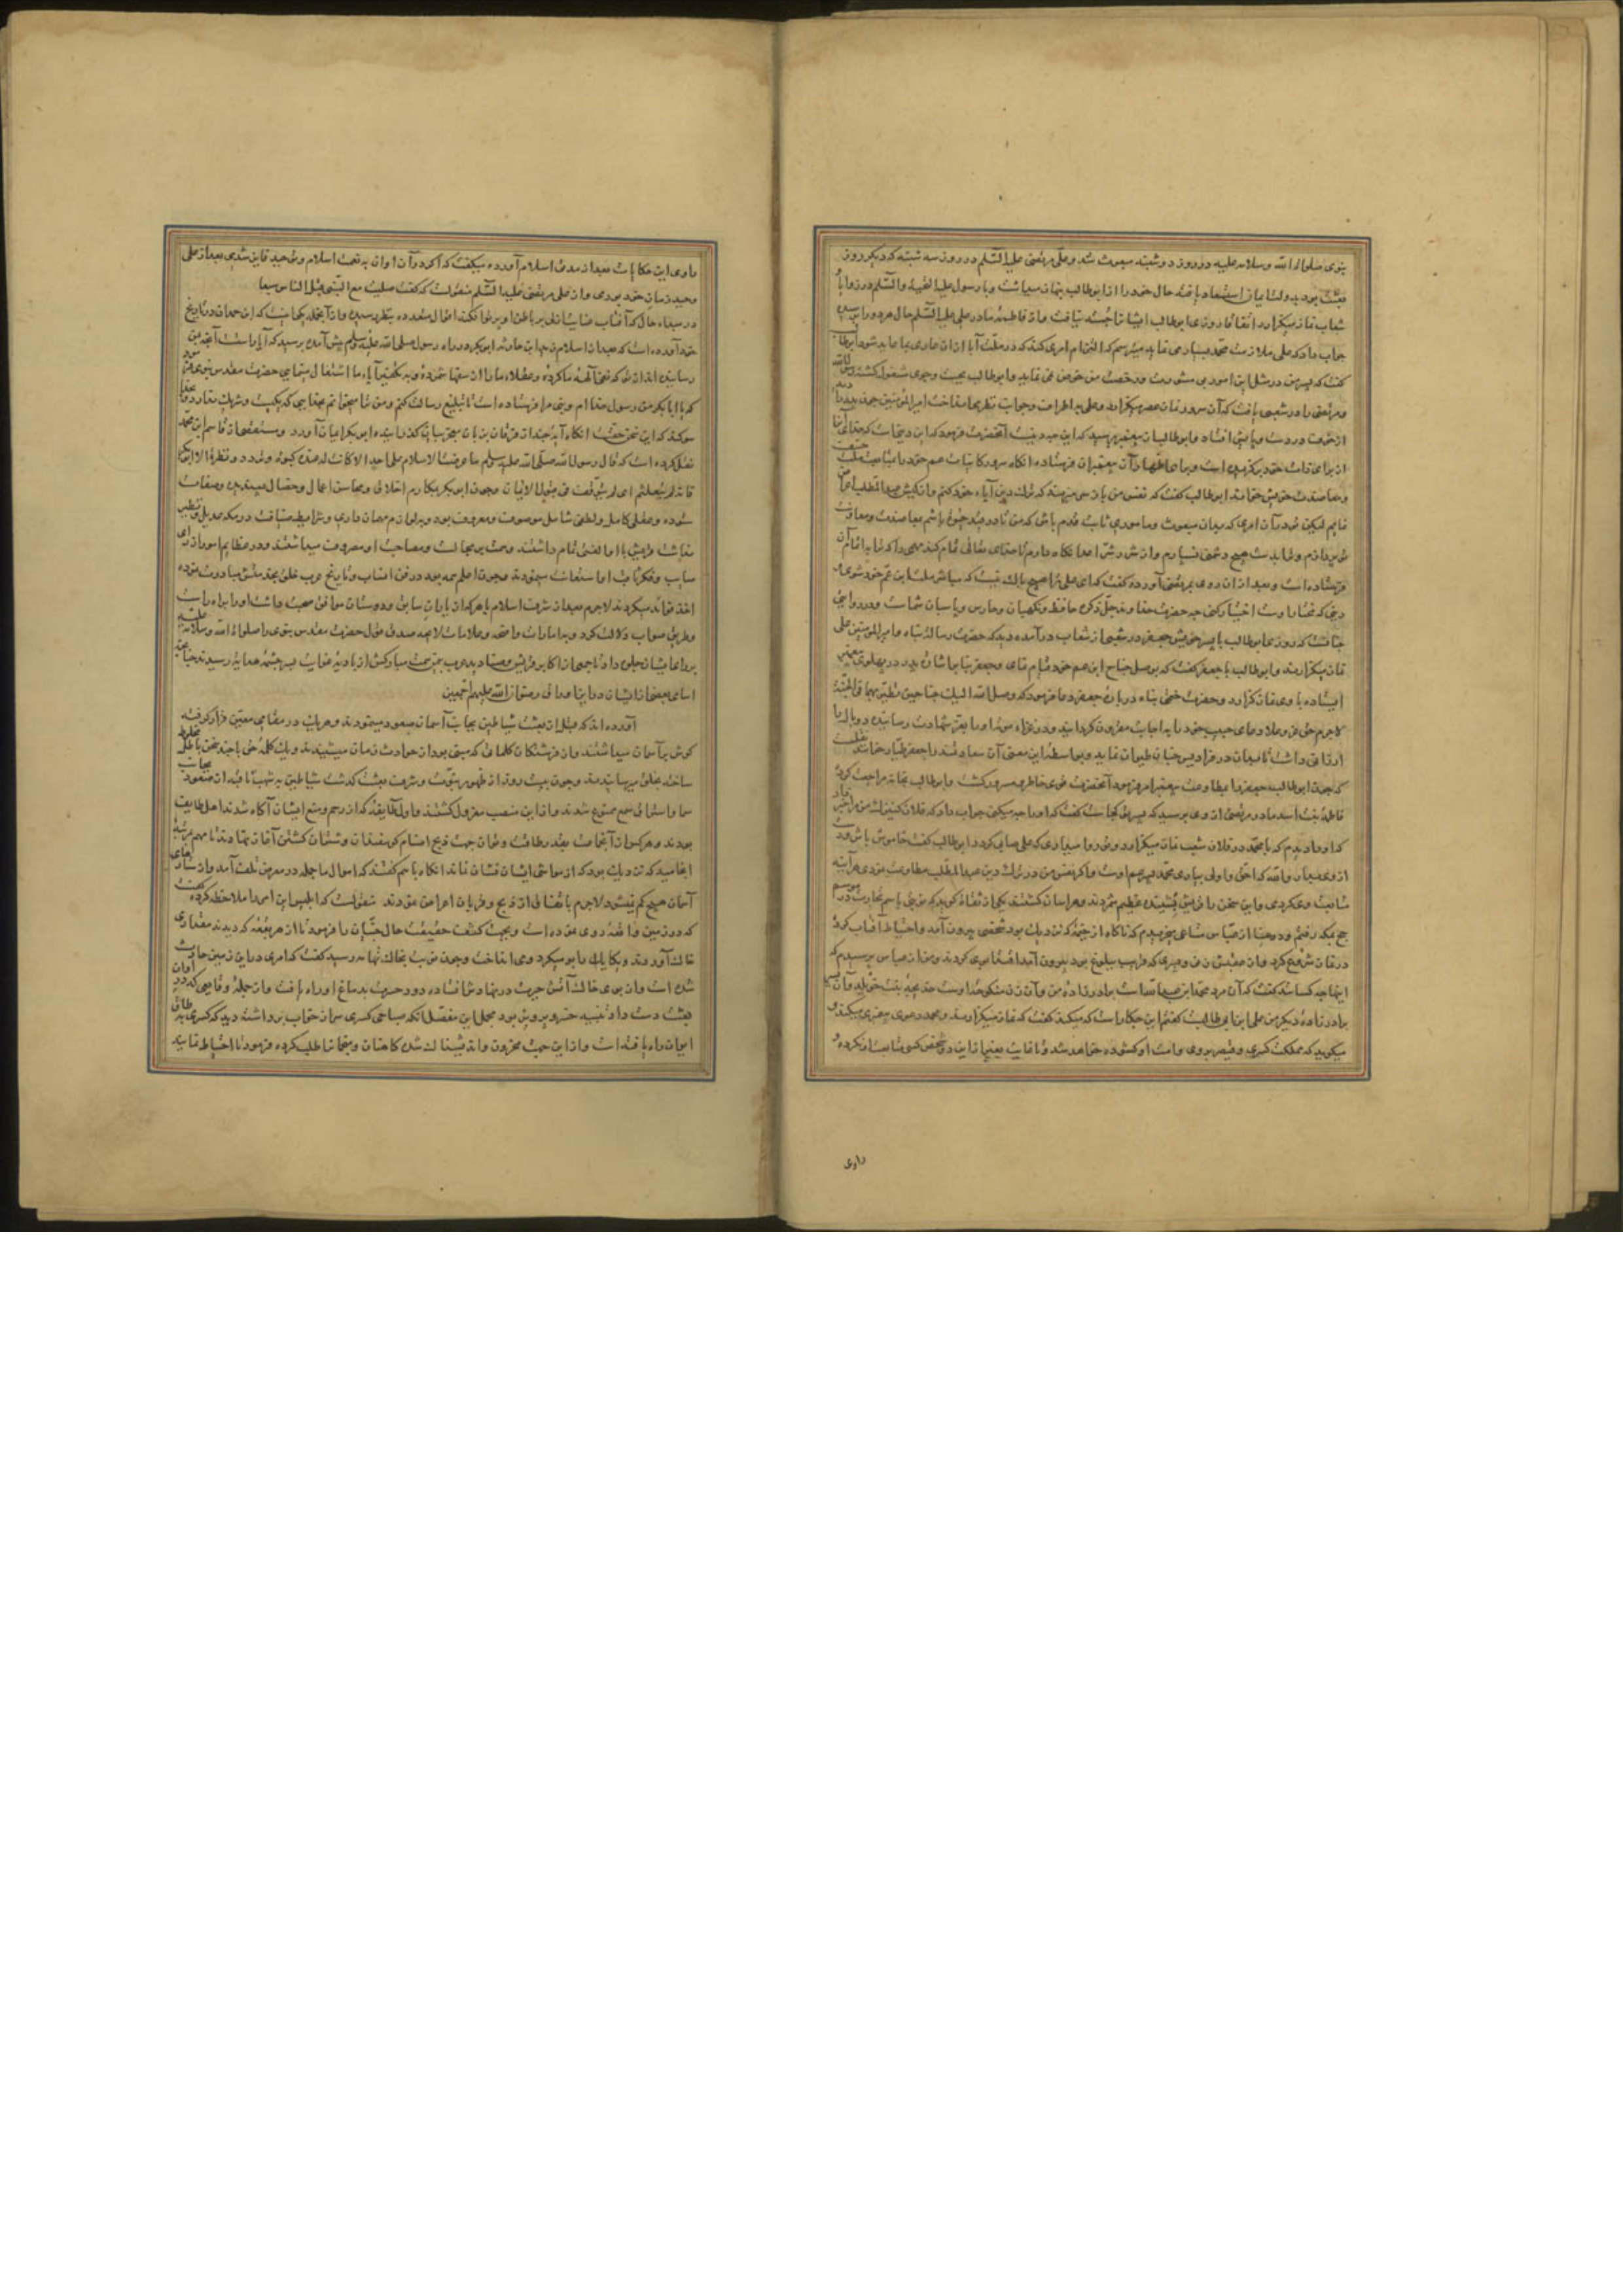 نبوی صلوات الله وسلامه علیه در روز دوشنبه مبعوث شد وعلی مرتضی علیه السلم در روز سه شنبه که دیکر روز
بعثت بود بدولت ایمان استسعاد یافته حال خود را از ابوطالب پنهان میداشت وبا رسول علیه التحیه والسلم در زوایا و
شعاب نماز میکزارد اتفاقا روزی ابوطالب ایشانرا جسته نیافت واز فاطمه مادر علی علیه السلم حال هر دو را پرسید
جواب داد که علی ملازمت محمد بسیار می نماید میترسم که التزام امری کند که در ملت آبا از ان عاری بما عاید شود ابوطالب
کفت که پسر من در مثل این امور بی مشورت ورخصت من خوض نمی نماید وابوطالب بجست وجوی مشغول کشته
ومرتضی را در شعبی یافت که آن سرور نماز عصر میکزارد وعلی بر اطراف وجوانب نظر می انداخت امیر المؤمنین چون پدر را
از خوف در دست وپایش افتاد وابوطالب از پیغمبر پرسید که این چه دینست آنحضرت فرمود که این دینیست که خدای تعالی
از برای ذات خود برکزیده است وبرای اظهار آن پیغمبران فرستاده انکاه سرور کاینات عم خود را بمتابعت ملت حنیف
ومعاضدت خویش خواند ابوطالب کفت که نفس من باز نمی دهد که ترک دین آباء خود کنم واز کیش عبد المطلب اعراض
نمایم لیکن تو در آن امری که بدان مبعوث ومأموری ثابت قدم باش که من تا در قید حیوة باشم بمعاضدت ومعاونت
تو پردازم ونماید بتو هیچ دشمن نسپارم واز شر دشمن اعدا نکاه دارم تا خدای تعالی تمام کند مهمی را که ترا به اتمام آن
فرستاده است وبعد از ان روی بمرتضی آورده کفت که ای علی ترا هیچ باک نیست که مباش ملت ابن عم خود شوی و
دینی که مختار اوست اختیار کنی چه حضرت خداوند جل ذکره حافظ ونکهبان وحارس وپاسبان شماست ودر روایتی
چنانست که روزی ابوطالب با پسر خویش جعفر در شعبی از شعاب درآمده دید که حضرت رسالت پناه وامیر المؤمنین علی
نماز میکزارند وابوطالب با جعفر کفت که بوصل جناح ابن عم خود قیام نمای وجعفر بنا بر اشارت پدر در پهلوی پیغمبر
ایستاده با وی نماز کزارد وحضرت ختمی پناه در باره جعفر دعا فرمود که وصل الله الیک جناحین تطیر بهما فی الجنة
لاجرم حق عز وعلا دعای حبیب خود را به اجابت مقرون کردانید ودر غزاء موته او را بعز شهادت رسانیده دو بال با
ارزانی داشت تا میان در فرادیس جنان طیران نماید وبواسطه این معنی آن سعادتمند را جعفر طیار خوانند
که چون ابوطالب جعفر را بمطاوعت پیغمبر امر فرمود آنحضرت قوی خاطر ومسرور کشت وابوطالب بخانه مراجعت کرد
فاطمه بنت اسد مادر مرتضی از وی پرسید که پسر تو کجاست کفت که او را چه میکنی جواب داد که فلان کنیزک من مرا خبر داد
که او را دیدم که با محمد در فلان شعب نماز میکزارد وتو روا میداری که علی صابی کردد ابوطالب کفت خاموش باش
از وی بسیار والله که احق واولی بیاری محمد پسر عم اوست واکر نفس من در ترک دین عبد المطلب مطاوعت نمودی هرآینه
متابعت وی کردمی واین سخن را قریش شنیده عظیم شمردند وهراسان کشتند یکی از ثقات کوید که من بتجارت در موسم
حج بمکه رفتم ودر منا از عباس متاعی میخریدم که ناکاه از خیمه که نزدیک بود شخصی بیرون آمد واحتیاط آفتاب کرده
در نماز شروع کرد واز عقبش زنی وپسری که قریب ببلوغ بود بیرون آمد اقتدا بوی کردند ومن از عباس پرسیدم که
اینها چه کسانند کفت که آن مرد محمد ابن عبدالله است برادر زاده من وآن زن منکوحه اوست خدیجه بنت خویلد وآن پسر
برادر زاده دیکر من علی ابن ابی طالبست کفتم این چکار است که میکند کفت که نماز میکزارند ومحمد دعوی پیغمبری میکند و
میکوید که مملکت کسری وقیصر بر وی وامت او کشوده خواهد شد وتا غایت بغیر از این دو شخص کسی متابعت او نکرده و
راوی
راوی این حکایات بعد از مدتی اسلام آورده میکفت که اکر در آن اوان به نعمت اسلام وتوحید فایز شدمی بعد از علی
وحید زمان خود بودمی واز علی مرتضی علیه السلم منقولست که کفت صلیت مع النبی قبل الناس سبعا
در مبداء حال که آفتاب
خود آورده است که پیش از اسلام زید ابن حارثه ابوبکر در راه رسول صلی الله علیه وسلم پیش آمده پرسید که آیا راست است آنچه بمن
رسانیده اند از تو که نفی آلهه ما کرده وعقلاء ما را از سفها شمرده وبه تکفیر آباء ما اشتغال مینمایی حضرت مقدس نبوی
که یا ابابکر من رسول خدا ام ونبی مرا فرستاده است تا تبلیغ رسالت کنم ومن ترا میخوانم بخدایی که یکیست وشریک ندارد
سوکند که این سخن حقست انکاه آیه چند از قرآن بر زبان معجز بیان کذرانیده ابوبکر ایمان آورد
نقل کرده است که قال رسول الله صلی الله علیه وسلم ما عرضت الاسلام علی احد الا کانت له عنده کبوة وتردد ونظرة الا ابوبکر
فانه لم یتلعثم ای لم یتوقف فی قبول الایمان وچون ابوبکر بمکارم اخلاق ومحاسن اعمال وخصال پسندیده وصفات
ستوده وعقلی کامل ولطفی شامل موصوف ومعروف بود وبه لوازم مهمان داری وشرایط ضیافت در مکه عدیل ونظیر
نداشت قریش با او الفتی تمام داشتند وهمت بر مجالست ومصاحبت او مصروف میداشتند ودر عظایم امور از رای
صایب وفکر ثاقب او استعانت میجستند وچون اعلم همه بود در فن انساب وتاریخ عرب خلق بخدمتش مبادرت نموده
اخذ فوائد میکردند لاجرم بعد از شرف اسلام با هرکه از یاران سابق ودوستان موافق صحبت داشت او را براه راست
وطریق صواب دلالت کرد وبه امارات واضحه وعلامات لایحه صدق قول حضرت مقدس نبوی را صلوات الله وسلامه علیه
بر وی ایشان جلوه داد تا جمعی از اکابر قریش وصنادید عرب بیمن همت مبارکش از بادیه غوایت بسرچشمه هدایه رسیدند
اسامی بعضی از ایشان در اثنا اوراق رضوان الله علیهم اجمعین
آورده اند که قبل از بعثت شیاطین بجانب آسمان صعود مینمودند وهریک در مقامی معین قرار کرفته
کوش بر آسمان میداشتند واز فرشتکان کلماتی که مبنی بود از حوادث زمان میشنیدند ویک کلمه حق با چند سخن باطل مخلوط
ساخته بخلق میرسانیدند وچون بیست روز از ظهور نبوت وشرف بعثت کذشت شیاطین به شهب ثاقبه از صعود بجانب
سما واستماع سمع ممنوع شدند واز این منصب معزول کشتند واول طایفه که از رجم ومنع ایشان آکاه شدند اهل طایف
بودند
انجامید که نزدیک بود که از مواشی ایشان نشان نماند انکاه باهم کفتند که اموال ما جمله در معرض تلف آمد واز ستارهای
آسمان هیچ کم نشد لاجرم بالضروره از ذبح وقربان اعراض نمودند منقولست که ابلیس این امر را ملاحظه کرده کفت
که در زمین واقعه روی نموده است وبجهت کشف حقیقت حال جنیان را فرمود تا از هر بقعه که دیدند مقداری
خاک آوردند ویکایک را بو میکرد ومی انداخت وچون نوبت بخاک تهامه رسید کفت که امری در این زمین حادث
شده است واز بوی خاک آتش حیرت در نهادش افتاده دود حسرت بدماغ او راه یافت واز جمله وقایعی که در اوان
بعثت دست داد تنبیه خسرو پرویز بود مجمل این مفصل آنکه صباحی کسری سر از خواب برداشته دید که کسری بطاق
ایوان راه یافته است واز این جهت محزون واندیشناک شده کاهنان ومنجمانرا طلب کرده فرمود تا احتیاط نمایند